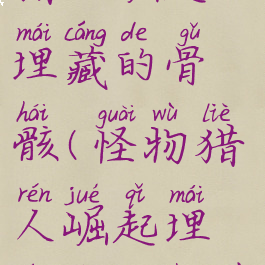 mái cáng de gǔ
埋藏的骨
hái guài wù liè
骸(怪物猎
rén jué qǐ mái
人崛起埋